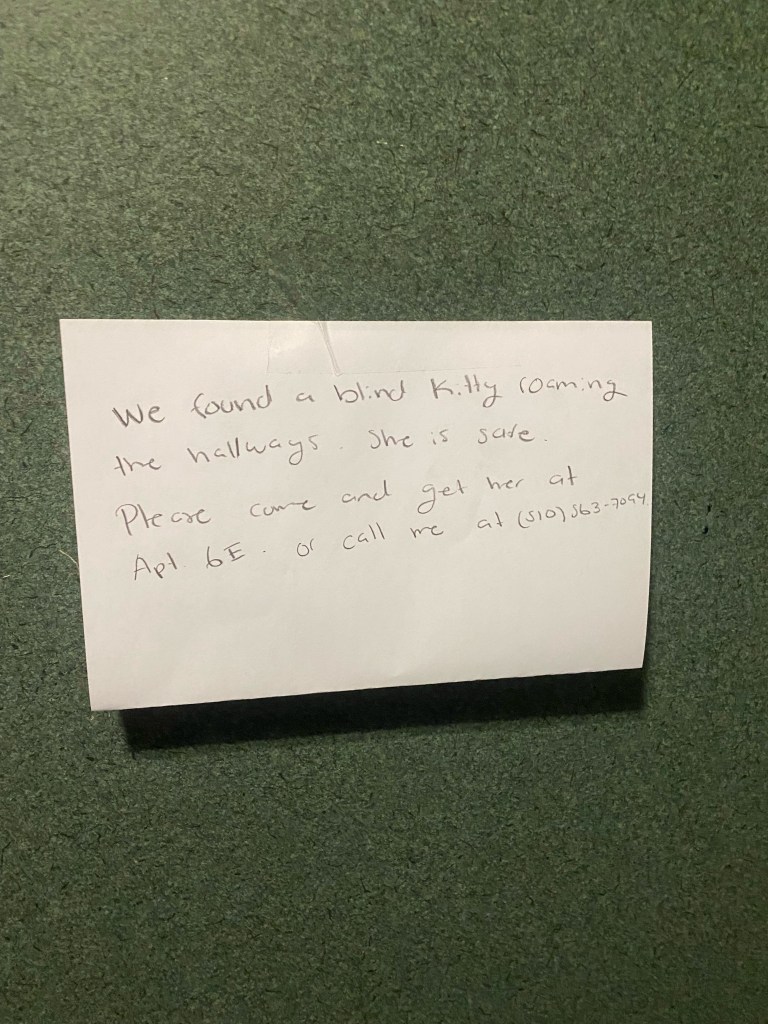 We found a blind Kitty roaming
the hallways. She is safe.
Please come and get her at
Apt. 6E. or call me at (510) 563-7094